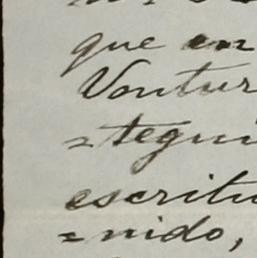 que en
Ventur
=tegui
escritu
=nido,